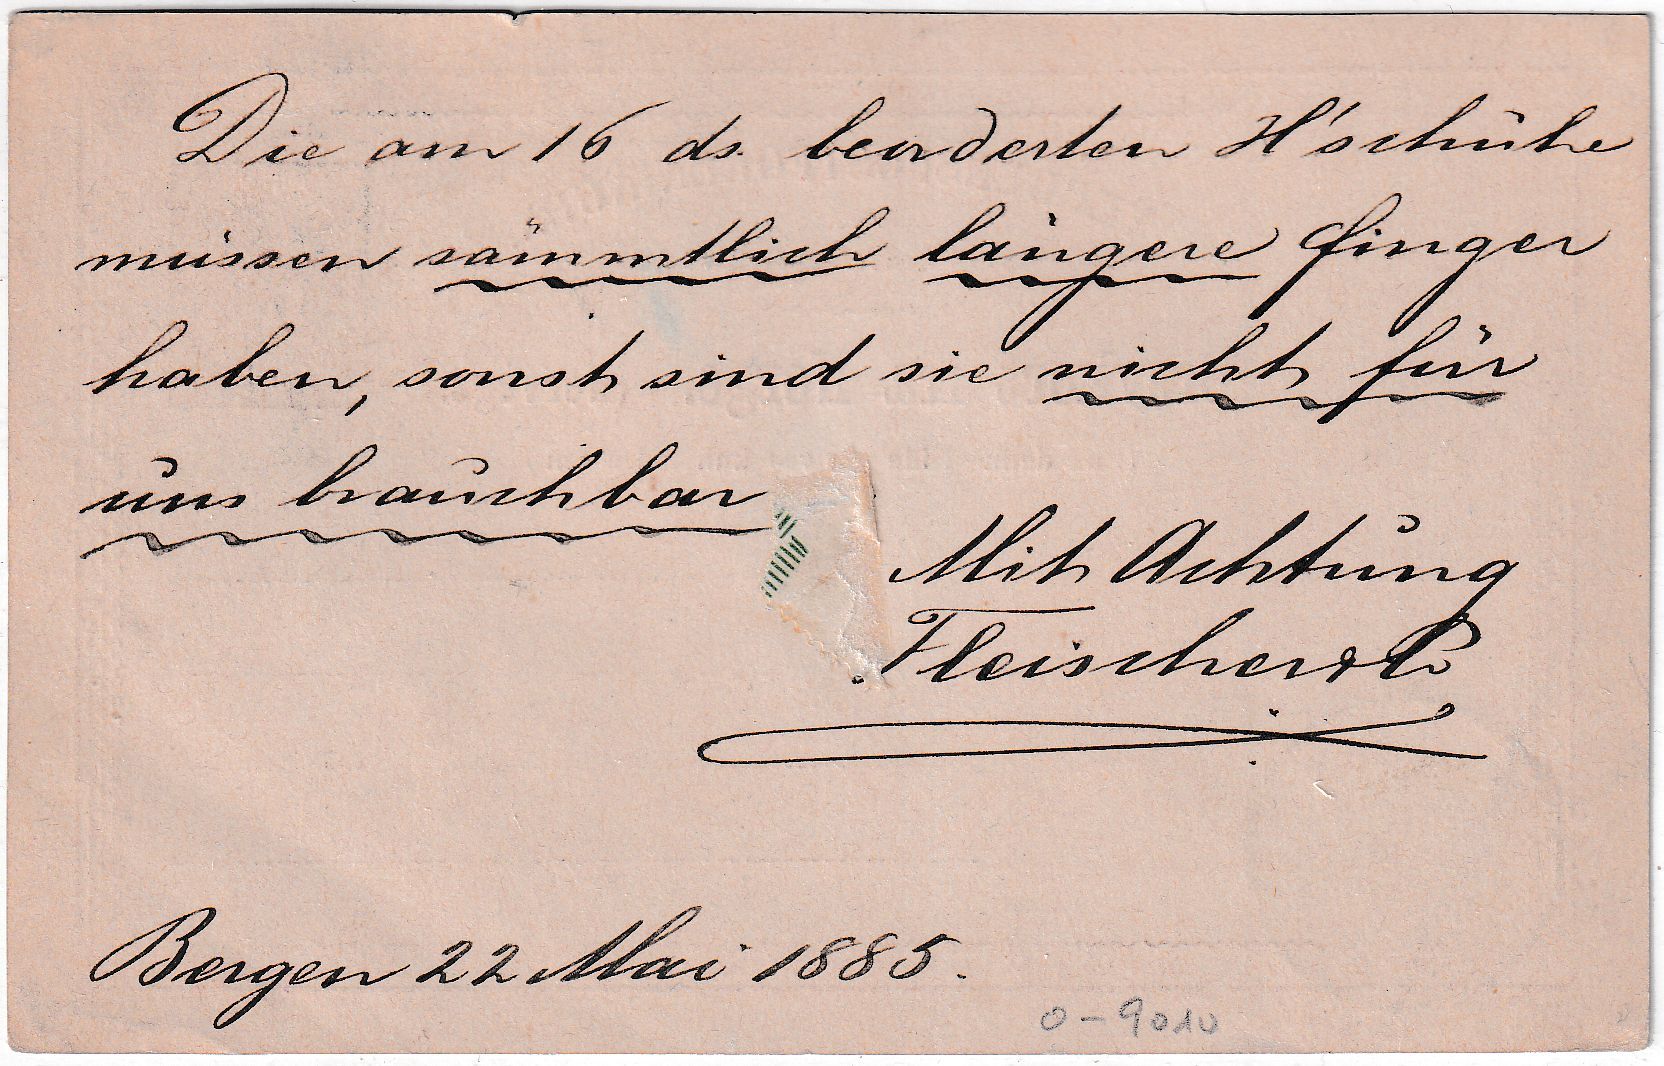 Die am 16 ds. beorderten H'schuhe
müssen sämmtlich längere Finger
haben, sonst sind sie nicht für
uns brauchbar
Mit Achtung
Fleischer & Co
Bergen 22 Mai 1885.
0-9010